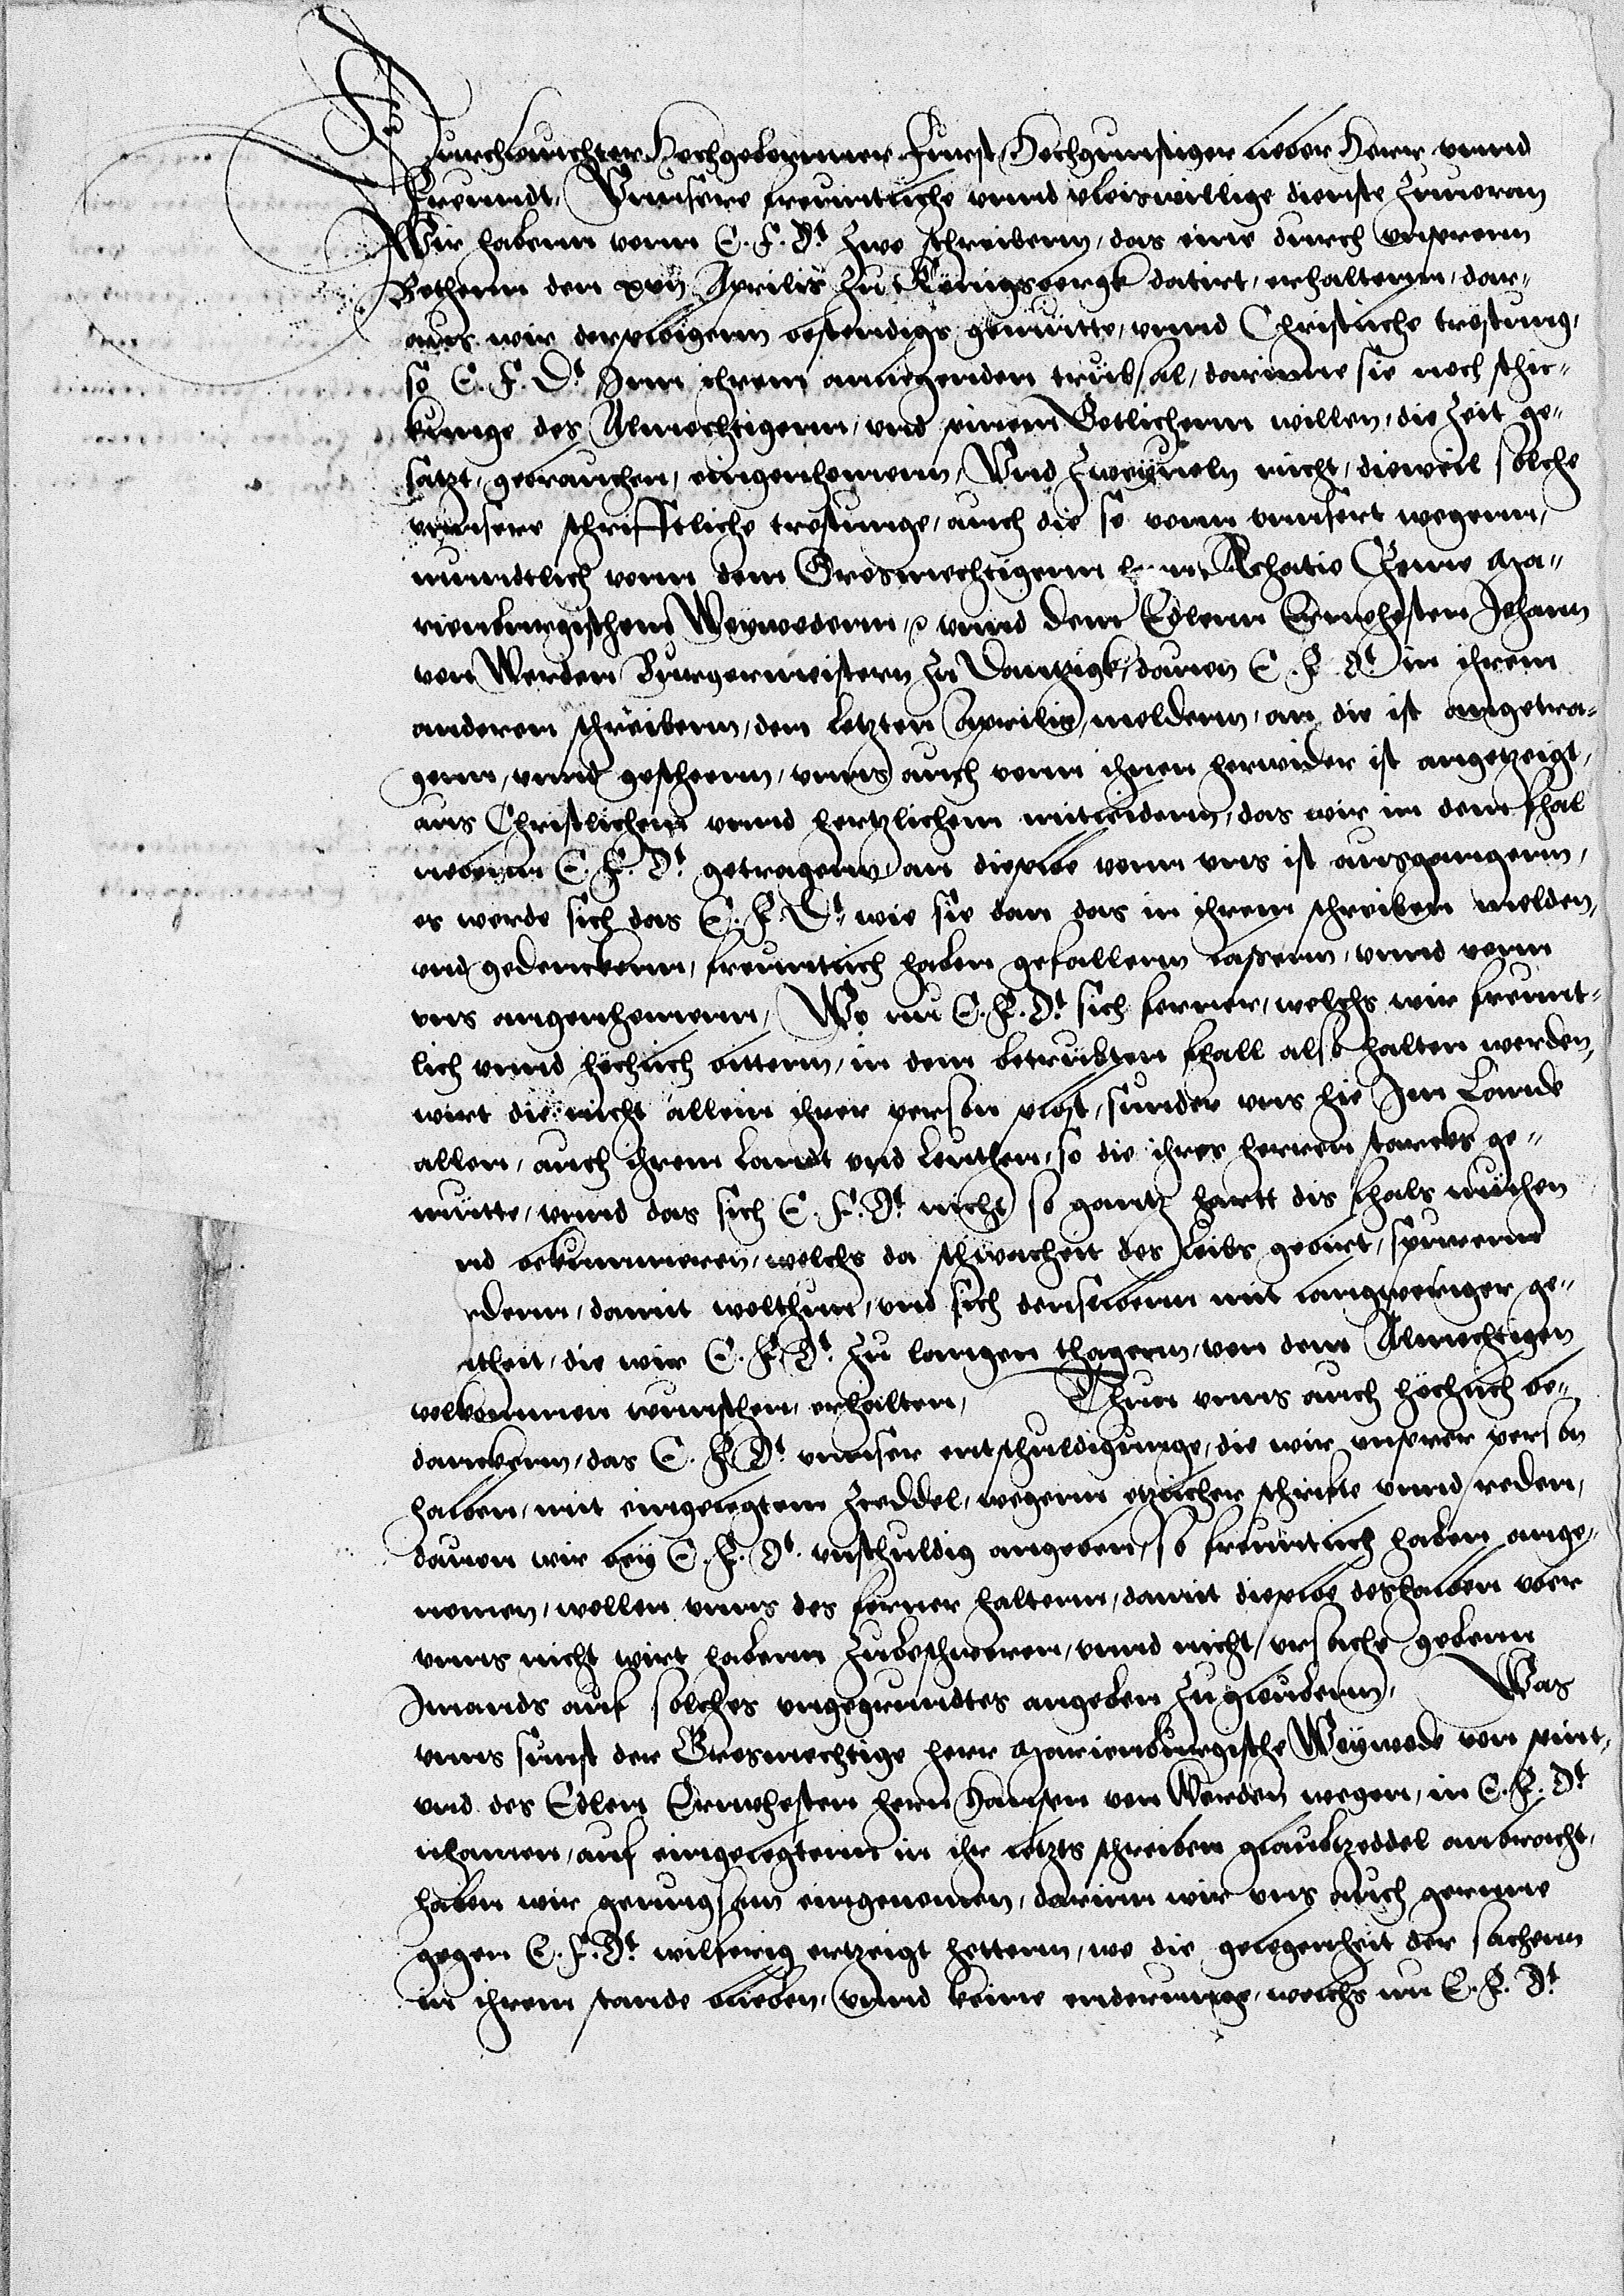 Durchlauchter Hochgeborner Furst, Hochgunstiger lieber Herr vnnd
Freundt, Vnnsere freuntliche vnnd vleiswillige dienste zuuoran
Wir habenn vonn E. F. Dt zwo schreibenn, das eine durch vnserenn
Bothenn den xvij Aprilis zu Königsbergk datirt, erhaltenn, dar-
aus wir derselbigenn bestendigs gemütte, vnnd Christliche tröstung,
so E. F. Dt Inn ihrem anliegenden trübsal, darinne sie noch schic-
kunge des Almechtigenn, vnd seinem Gotlichenn willen, die Zeit ge-
satzt, gebrauchen, eingenhomenn, Vnd zweyueln nicht, dieweil solche
vnnsere schrifftliche trostunge, auch die so vonn vnnsert wegenn,
mundtlich vonn dem Grosmechtigenn hern Achatio Czeme Ma-
rienburgischem Weywodenn, vnnd dem Edlenn Ernvhesten Johann
von Werden Burgermeistern zu Dantzigk, dauon E. F. Dt in ihrem
anderen schreibenn, den letzten Aprilis, meldenn, an die ist angetra-
genn, vnnd gescheenn, vnns auch vonn ihnen herwider ist angetzeigt,
aus Christlichem vnnd hertzlichem mitleidenn, das wir in dem fhal
nebenn E. F. Dt getragenn, an dieselbe vonn vns ist ausgangenn,
es werde sich das E. F. Dt wie sie dan das in ihrem schreiben melden,
vnd gedenckenn, freuntlich haben gefallenn lassenn, vnnd vonn
vns angenhomenn, Wo nu E. F. Dt sich ferner, welchs wir freunt-
lich vnnd höchlich bittenn, in dem betrübten fhall also halten werden,
wirt die nicht allein ihrer person selbst, sunder vns hie Im Lande
allen, auch ihrem Landt vnd Leuthen, so die ihres herren starcks ge-
mütte, vnnd das sich E. F. Dt nicht so gantz hartt dis fhals müehen
nd bekummeren, welchs da schwacheit des Leibs gebirt, spurenn
rdenn, damit wolthun, vnd sich denselbenn mit langweriger ge-
theit, die wir E. F. Dt zu langen thagenn, von dem Almechtigen
volkommen wunschen, erhalten, Thun vnns auch höchlich be-
danckenn, das E. F. Dt vnnser entschuldigunge, die wir vnserer person
halben, mit eingelegtem Zceddel, wegenn etzlicher schrifte vnnd reden,
dauon wir bey E. F. Dt vnschuldig angeben, so freuntlich haben ange-
nomen, wollen vnns des ferner haltenn, damit dieselbe deshalben vber
vnns nicht wirt habenn zubeschweren, vnnd nicht vrsache gebenn
Imands auf solches vngegrundtes angeben zuglaubenn, Was
vnns sunst der Grosmechtige herr Marienburgische Weywode von seint-
vnd des Edlen Ernvhesten hern Hansen von Werden wegen, in E. F. Dt
nhamen, auf eingelegtenn in ihr letzts schreiben glaubtzeddel anbracht,
haben wir genugsam eingenomen, darinn wir vns auch gernne
gegen E. F. Dt wilferig ertzeigt hettenn, wo die gelegenheit der sachenn
in ihrem stande blieben, vnnd keine enderunge, welchs nu E. F. Dt